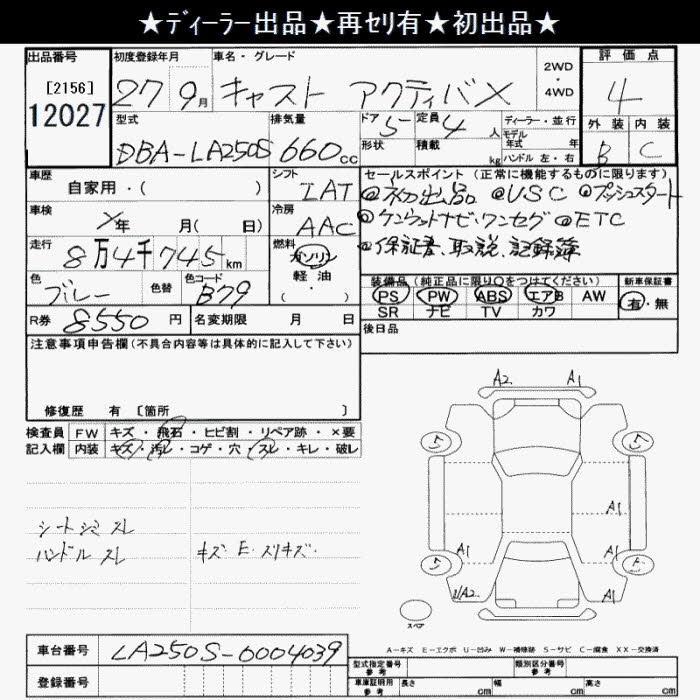 ★ディーラー出品★再セリ有★初出品★
出品番号
[2156]
12027
初度登録年月
27 9月
車名・グレード
キャスト アクティバX
2WD
・
4WD
評価点
4
外装 内装
B C
型式
DBA-LA250S
排気量
660cc
ドア
5
定員
4人
形状
積載
kg
ディーラー・並行
モデル
年式 年
ハンドル 左・右
車歴
自家用・( )
シフト
IAT
車検
年 月( 日)
冷房
AAC
走行
8万4千745km
燃料
ガソリン
軽・油
・( )
色
ブルー
色替
色コード
B79
R券 8550円
名変期限 月 日
セールスポイント(正常に機能するものに限ります)
◎初出品 ◎USC ◎プッシュスタート
◎ケンウッドナビ・ワンセグ ◎ETC
◎保証書、取説、記録簿
装備品(純正品に限り○をつけてください)
新車保証書
PS PW ABS エアB AW
有・無
SR ナビ TV カワ
後日品
注意事項申告欄(不具合内容等は具体的に記入して下さい)
修復歴 有 〔箇所 〕
検査員 FW キズ・飛石・ヒビ割・リペア跡・×要
記入欄 内装 キズ・汚レ・コゲ・穴・スレ・キレ・破レ
シートシミ スレ
ハンドル スレ
キズ・E・スリキズ・
A2 A1
5 5
A1
A1 A1
5
U/A2 A1
スペア
A-キズ E-エクボ U-凹み W-補修跡 S-サビ C-腐食 XX-交換済
車台番号 LA250S-0004039
登録番号
型式指定番号
参考
類別区分番号
参考
車庫証明用
参考
長さ cm 幅 cm 高さ cm